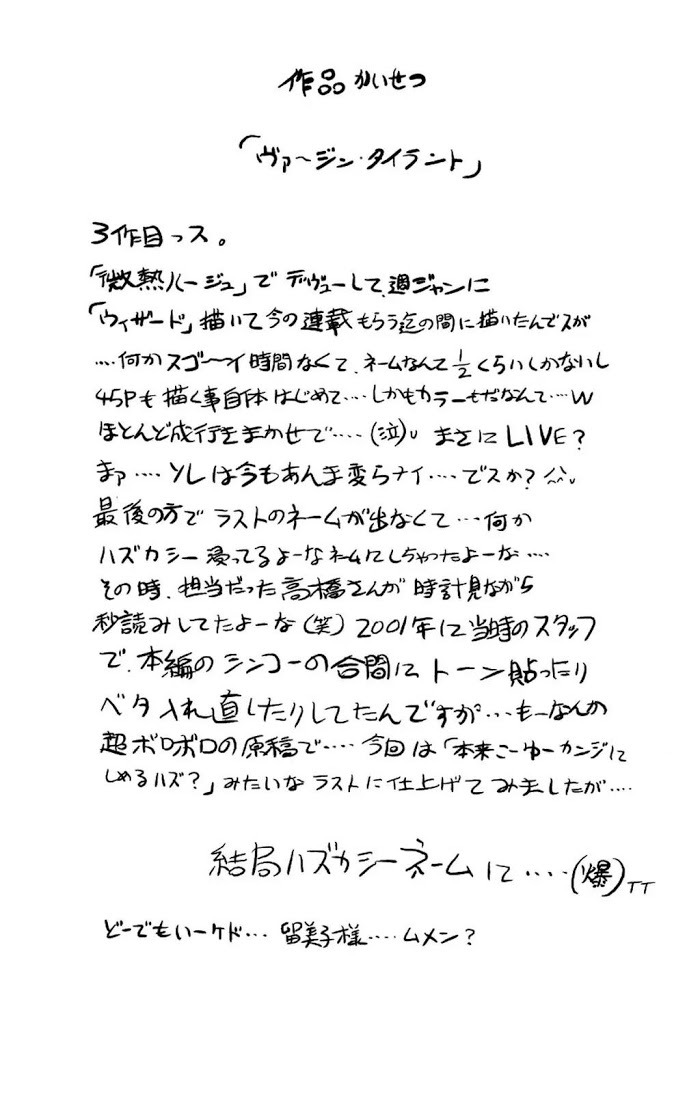 作品かいせつ
「ヴァ〜ジン・タイラント」
3作目っス。
「微熱ルージュ」でデヴューして、週ジャンに
「ウィザード」描いて今の連載もらう迄の間に描いたんでスが
‥‥何かスゴ〜イ時間なくて、ネームなんて1/2くらいしかないし
45Pも描く事自体はじめて‥‥しかもカラーもだなんて‥‥w
ほとんど成行きまかせで‥‥(泣) まさにLIVE?
まァ‥‥ソレは今もあんま変らナイ‥‥でスか?^^;
最後の方でラストのネームが出なくて‥‥何か
ハズカシー浸ってるよーなネームにしちゃったよーな‥‥
その時、担当だった高橋さんが時計見ながら
秒読みしてたよーな(笑) 2001年に当時のスタッフ
で、本編のシンコーの合間にトーン貼ったり
ベタ入れ直したりしてたんですが‥‥もーなんか
超ボロボロの原稿で‥‥今回は「本来こーゆーカンジに
しめるハズ?」みたいなラストに仕上げてみましたが‥‥
結局ハズカシーネームに‥‥(爆)TT
どーでもいーケド‥‥留美子様‥‥ムメン?